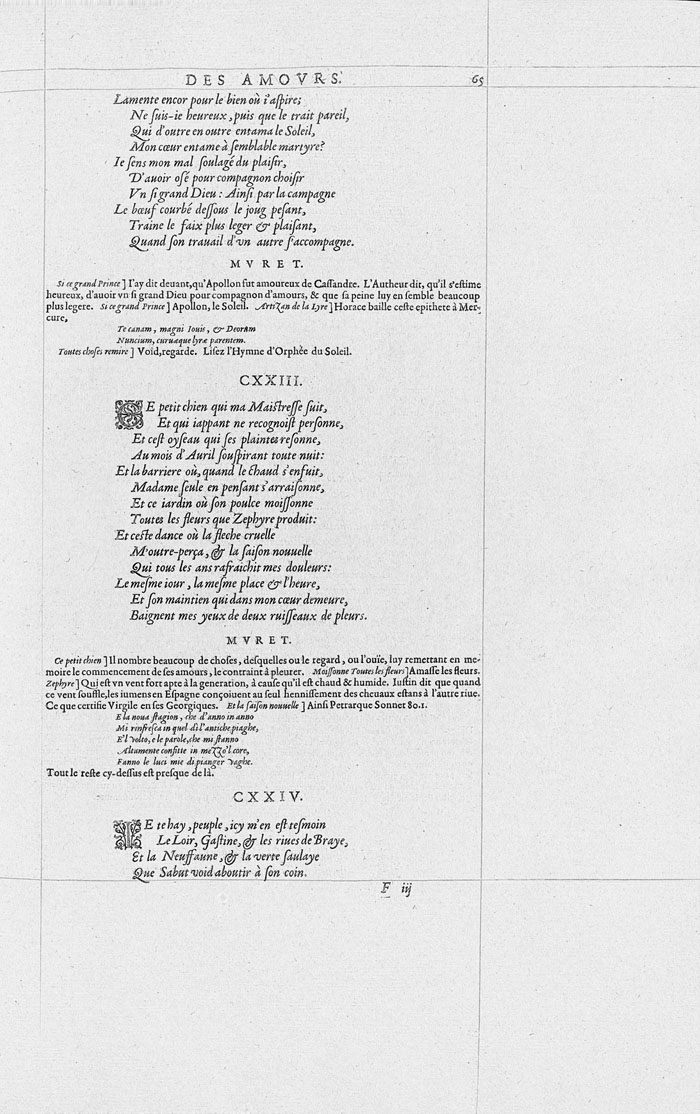 DES AMOVRS. 65
Lamente encor pour le bien où i'aspire;
Ne suis-ie heureux, puis que le trait pareil,
Qui d'outre en outre entama le Soleil,
Mon cœur entame à semblable martyre?
Ie sens mon mal soulagé du plaisir,
D'auoir osé pour compagnon choisir
Vn si grand Dieu: Ainsi par la campagne
Le bœuf courbé dessous le joug pesant,
Traine le faix plus leger & plaisant,
Quand son trauail d'vn autre s'accompagne.
MVRET.
Si ce grand Prince] I'ay dit deuant, qu'Apollon fut amoureux de Cassandre. L'Autheur dit, qu'il s'estime
heureux, d'auoir vn si grand Dieu pour compagnon d'amours, & que sa peine luy en semble beaucoup
plus legere. Si ce grand Prince] Apollon, le Soleil. Artizan de la Lyre] Horace baille ceste epithete à Mer-
cure,
Te canam, magni Iouis, & Deorum
Nuncium, curuæque lyræ parentem.
Toutes choses remire] Void, regarde. Lisez l'Hymne d'Orphée du Soleil.
CXXIII.
CE petit chien qui ma Maistresse suit,
Et qui iappant ne recognoist personne,
Et cest oyseau qui ses plaintes resonne,
Au mois d'Auril souspirant toute nuit:
Et la barriere où, quand le chaud s'enfuit,
Madame seule en pensant s'arraisonne,
Et ce iardin où son poulce moissonne
Toutes les fleurs que Zephyre produit:
Et ceste dance où la fleche cruelle
M'outre-perça, & la saison nouuelle
Qui tous les ans rafraichit mes douleurs:
Le mesme iour, la mesme place & l'heure,
Et son maintien qui dans mon cœur demeure,
Baignent mes yeux de deux ruisseaux de pleurs.
MVRET.
Ce petit chien] Il nombre beaucoup de choses, desquelles ou le regard, ou l'ouïe, luy remettant en me-
moire le commencement de ses amours, le contraint à pleurer. Moissonne Toutes les fleurs] Amasse les fleurs.
Zephyre] Qui est vn vent fort apte à la generation, à cause qu'il est chaud & humide. Iustin dit que quand
ce vent souffle, les iumens en Espagne conçoiuent au seul hennissement des cheuaux estans à l'autre riue.
Ce que certifie Virgile en ses Georgiques. Et la saison nouuelle] Ainsi Petrarque Sonnet 80.1.
E la noua stagion, che d'anno in anno
Mi rinfresca in quel dì l'antiche piaghe,
E'l volto, e le parole, che mi stanno
Altamente confitte in mezzo'l core,
Fanno le luci mie di pianger vaghe.
Tout le reste cy-dessus est presque de là.
CXXIV.
IE te hay, peuple, icy m'en est tesmoin
Le Loir, Gastine, & les riues de Braye,
Et la Neuffaune, & la verte saulaye
Que Sabut void aboutir à son coin.
F iij